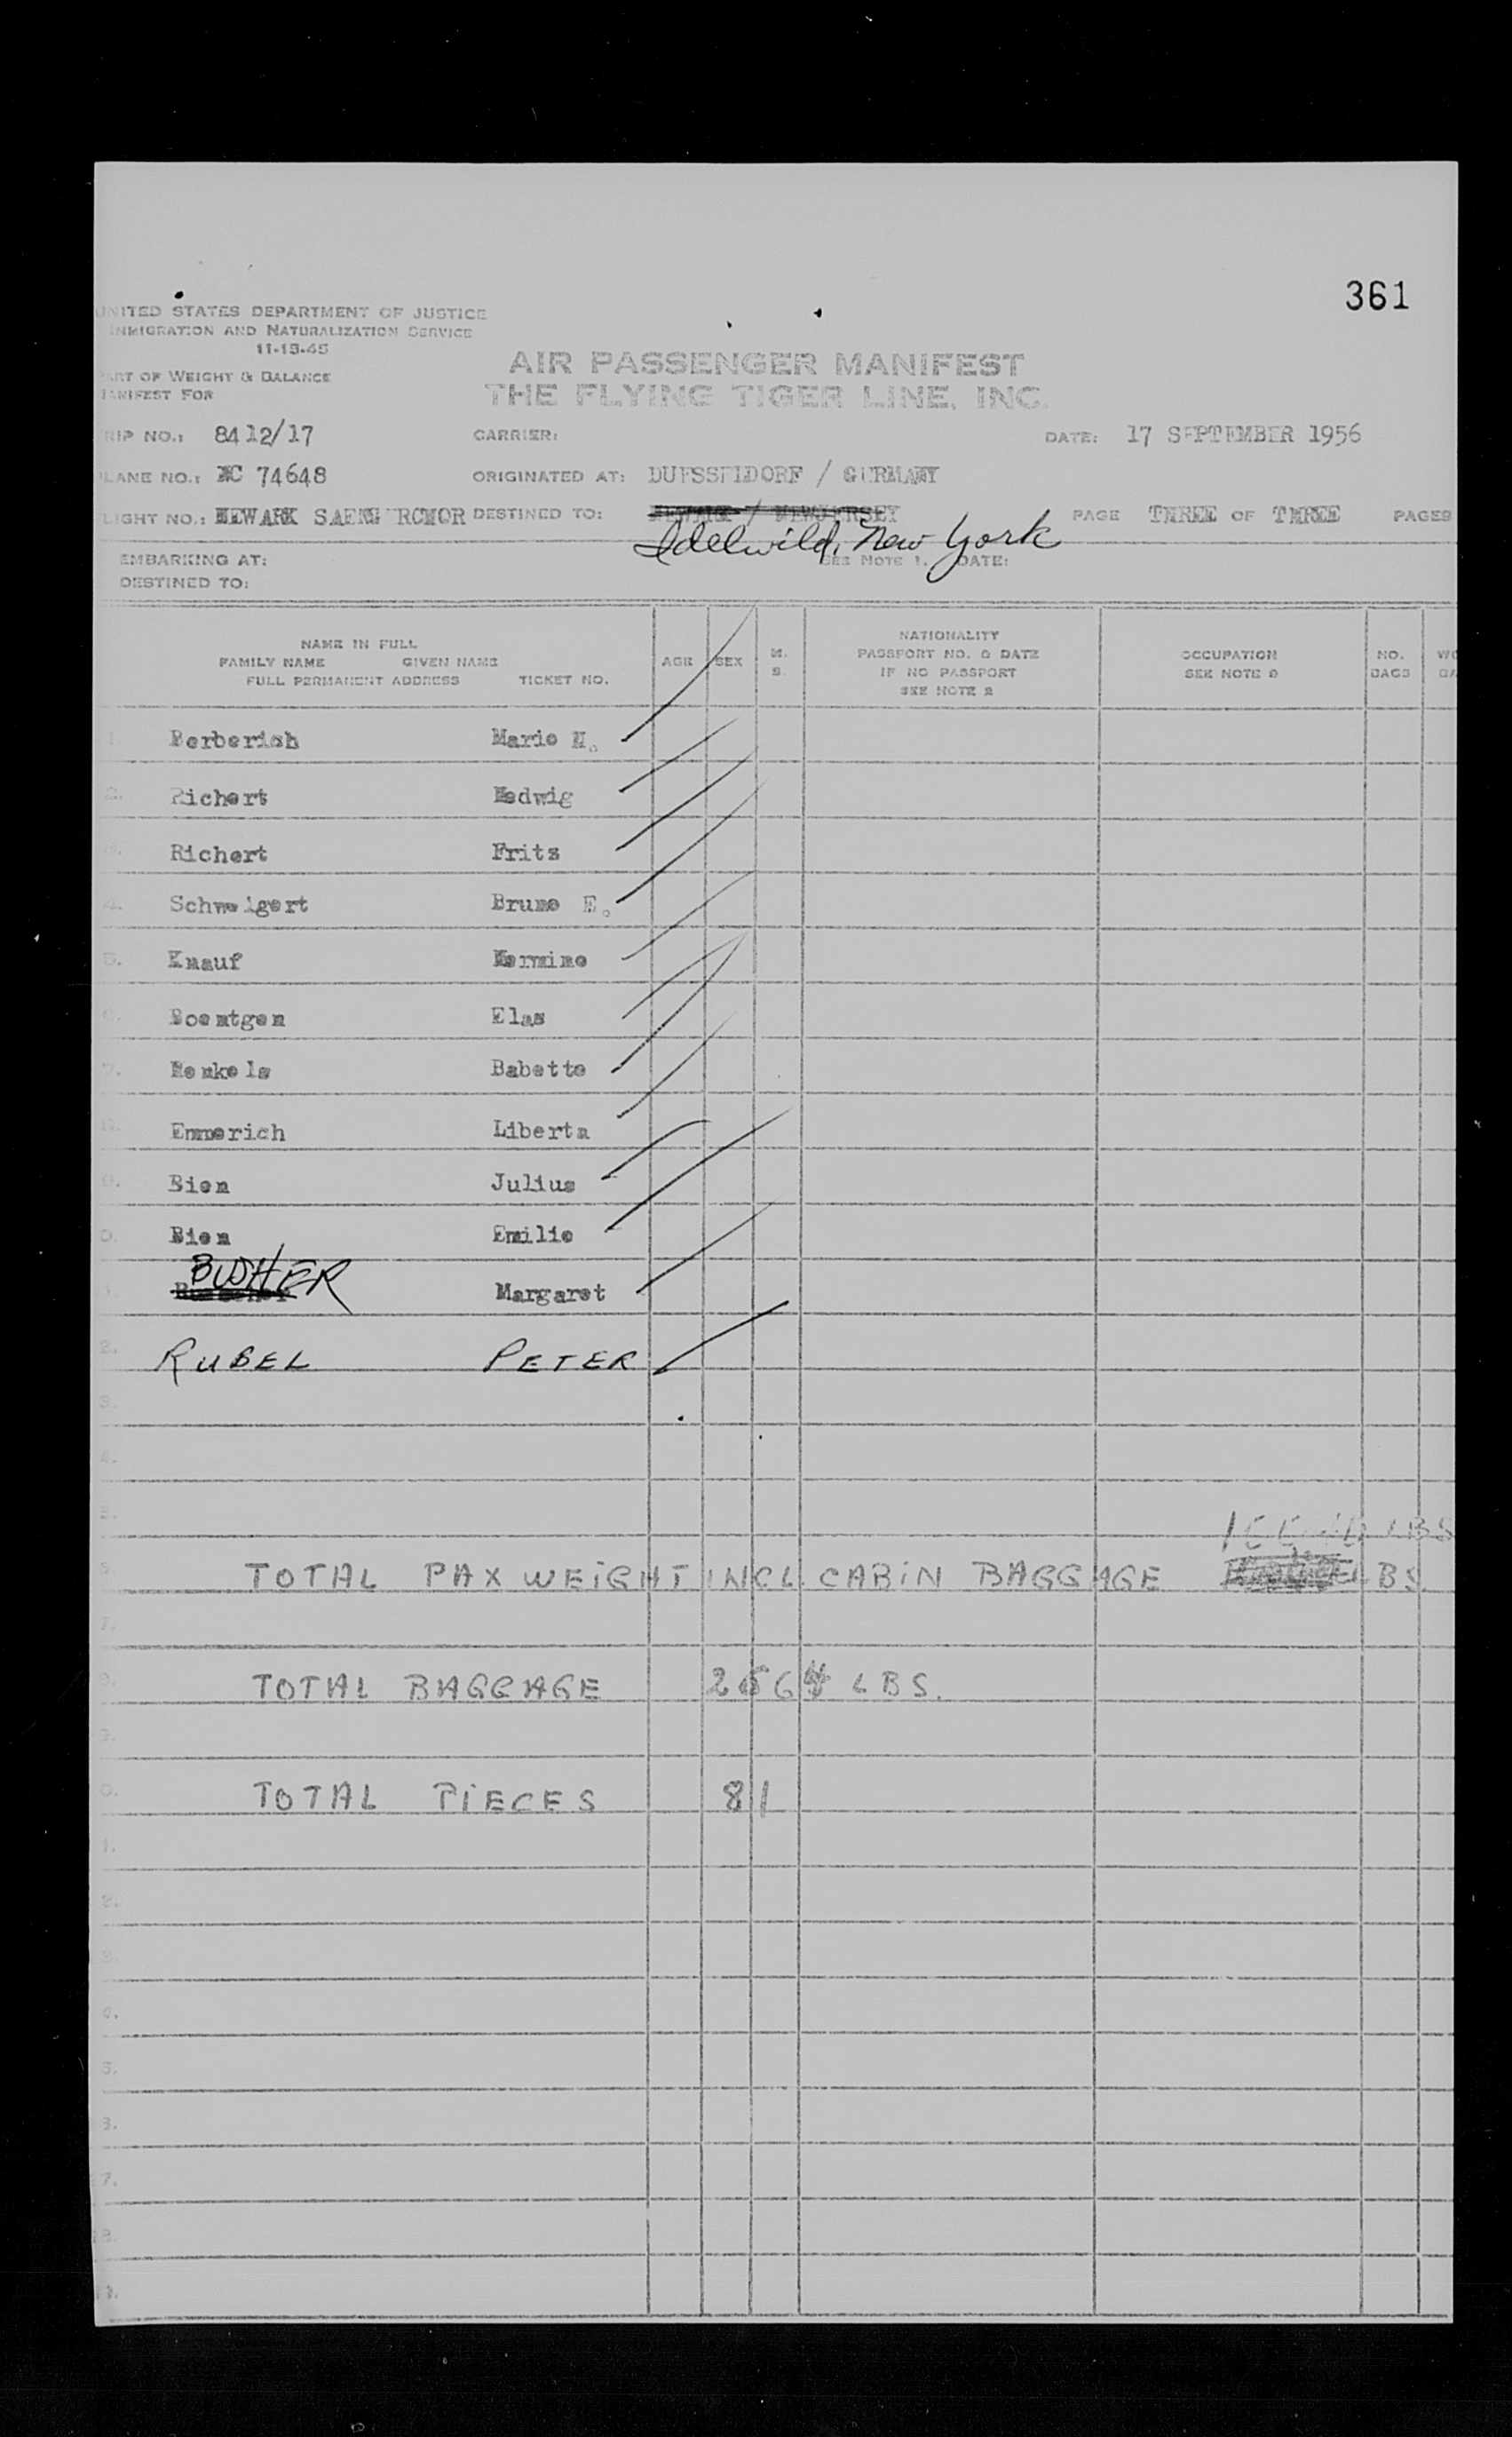 361
UNITED STATES DEPARTMENT OF JUSTICE
IMMIGRATION AND NATURALIZATION SERVICE
11-15-45
PART OF WEIGHT & BALANCE
MANIFEST FOR
AIR PASSENGER MANIFEST
THE FLYING TIGER LINE, INC.
TRIP NO.: 8412/17 CARRIER: DATE: 17 SEPTEMBER 1956
PLANE NO.: NC 74648 ORIGINATED AT: DUESSELDORF / GERMANY
FLIGHT NO.: NEWARK DESTINED TO: NEWARK / NEWJERSEY PAGE THREE OF THREE PAGES
Idelwild, New York
EMBARKING AT: SEE NOTE 1. DATE:
DESTINED TO:
NAME IN FULL
FAMILY NAME GIVEN NAME
FULL PERMANENT ADDRESS TICKET NO.
AGE SEX M. S.
NATIONALITY
PASSPORT NO. & DATE
IF NO PASSPORT
SEE NOTE 2
OCCUPATION
SEE NOTE 2
NO.
BAGS
1. Berberich Marie H.
2. Richert Hedwig
3. Richert Fritz
4. Schweigert Bruno E.
5. Knauf Hermine
6. Elas
7. Henkels Babette
8. Emmerich Liberta
9. Bien Julius
0. Bien Emilie
BUSHER
1. Margaret
2. RUBEL PETER
3.
4.
5.
LBS
6. TOTAL PAX WEIGHT INCL. CABIN BAGGAGE LBS
7.
8. TOTAL BAGGAGE 2564 LBS.
9.
0. TOTAL PIECES 81
1.
2.
3.
4.
5.
6.
7.
8.
9.